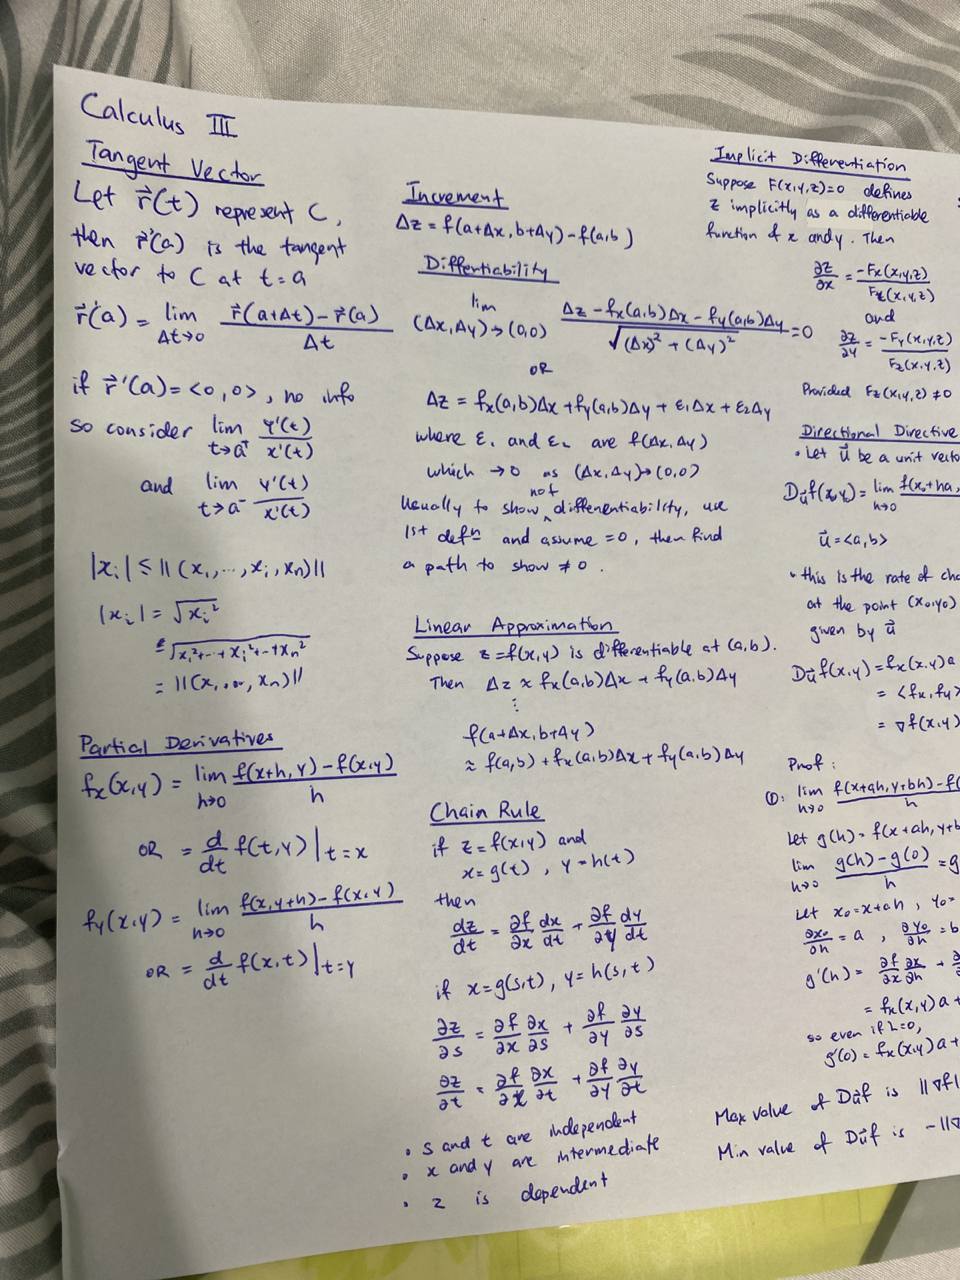 Calculus III
Tangent Vector
Let r⃗(t) represent C,
then r⃗'(a) is the tangent
vector to C at t=a
r⃗'(a) = lim Δt→0 (r⃗(a+Δt) - r⃗(a)) / Δt
if r⃗'(a) = <0,0>, no info
so consider lim t→a⁺ y'(t)/x'(t)
and lim t→a⁻ y'(t)/x'(t)
|xᵢ| ≤ ||(x₁,...,xᵢ,xₙ)||
|xᵢ| = √xᵢ²
≤ √x₁²+...+xᵢ²+...+xₙ²
= ||(x,..., xₙ)||
Partial Derivatives
fₓ(x,y) = lim h→0 (f(x+h,y) - f(x,y)) / h
OR = d/dt f(t,y)|t=x
fy(x,y) = lim h→0 (f(x,y+h) - f(x,y)) / h
OR = d/dt f(x,t)|t=y
Increment
Δz = f(a+Δx, b+Δy) - f(a,b)
Differtiability
lim (Δx,Δy)→(0,0) (Δz - fx(a,b)Δx - fy(a,b)Δy) / √((Δx)² + (Δy)²) = 0
OR
Δz = fx(a,b)Δx + fy(a,b)Δy + ε₁Δx + ε₂Δy
where ε₁ and ε₂ are f(Δx,Δy)
which →0 as (Δx,Δy)→(0,0)
Usually to show not differentiability, use
1st defn and assume =0, then find
a path to show ≠0.
Linear Approximation
Suppose z=f(x,y) is differentiable at (a,b).
Then Δz ≈ fx(a,b)Δx + fy(a,b)Δy
⋮
f(a+Δx, b+Δy)
≈ f(a,b) + fx(a,b)Δx + fy(a,b)Δy
Chain Rule
if z=f(x,y) and
x=g(t), y=h(t)
then
dz/dt = ∂f/∂x dx/dt + ∂f/∂y dy/dt
if x=g(s,t), y=h(s,t)
∂z/∂s = ∂f/∂x ∂x/∂s + ∂f/∂y ∂y/∂s
∂z/∂t = ∂f/∂x ∂x/∂t + ∂f/∂y ∂y/∂t
• s and t are independent
• x and y are intermediate
• z is dependent
Implicit Differentiation
Suppose F(x,y,z)=0 defines
z implicitly as a differentiable
function of x and y. Then
∂z/∂x = -Fx(x,y,z) / Fz(x,y,z)
and
∂z/∂y = -Fy(x,y,z) / Fz(x,y,z)
Provided Fz(x,y,z) ≠ 0
Directional Directive
• Let u⃗ be a unit vecto
Du⃗f(x₀,y₀) = lim h→0 f(x₀+ha,
u⃗ = <a,b>
• this is the rate of cha
at the point (x₀,y₀)
given by u⃗
Du⃗f(x,y) = fx(x,y)a
= <fx,fy>
= ∇f(x,y)
Prof:
①: lim h→0 f(x+ah,y+bh)-f( / h
Let g(h) = f(x+ah, y+b
lim h→0 (g(h) - g(0)) / h = g
Let x₀=x+ah, y₀=
∂x₀/∂h = a, ∂y₀/∂h = b
g'(h) = ∂f/∂x ∂x/∂h +
= fx(x,y)a +
so even if h=0,
g'(0) = fx(x,y)a +
Max value of Du⃗f is ||∇f|
Min value of Du⃗f is -||∇